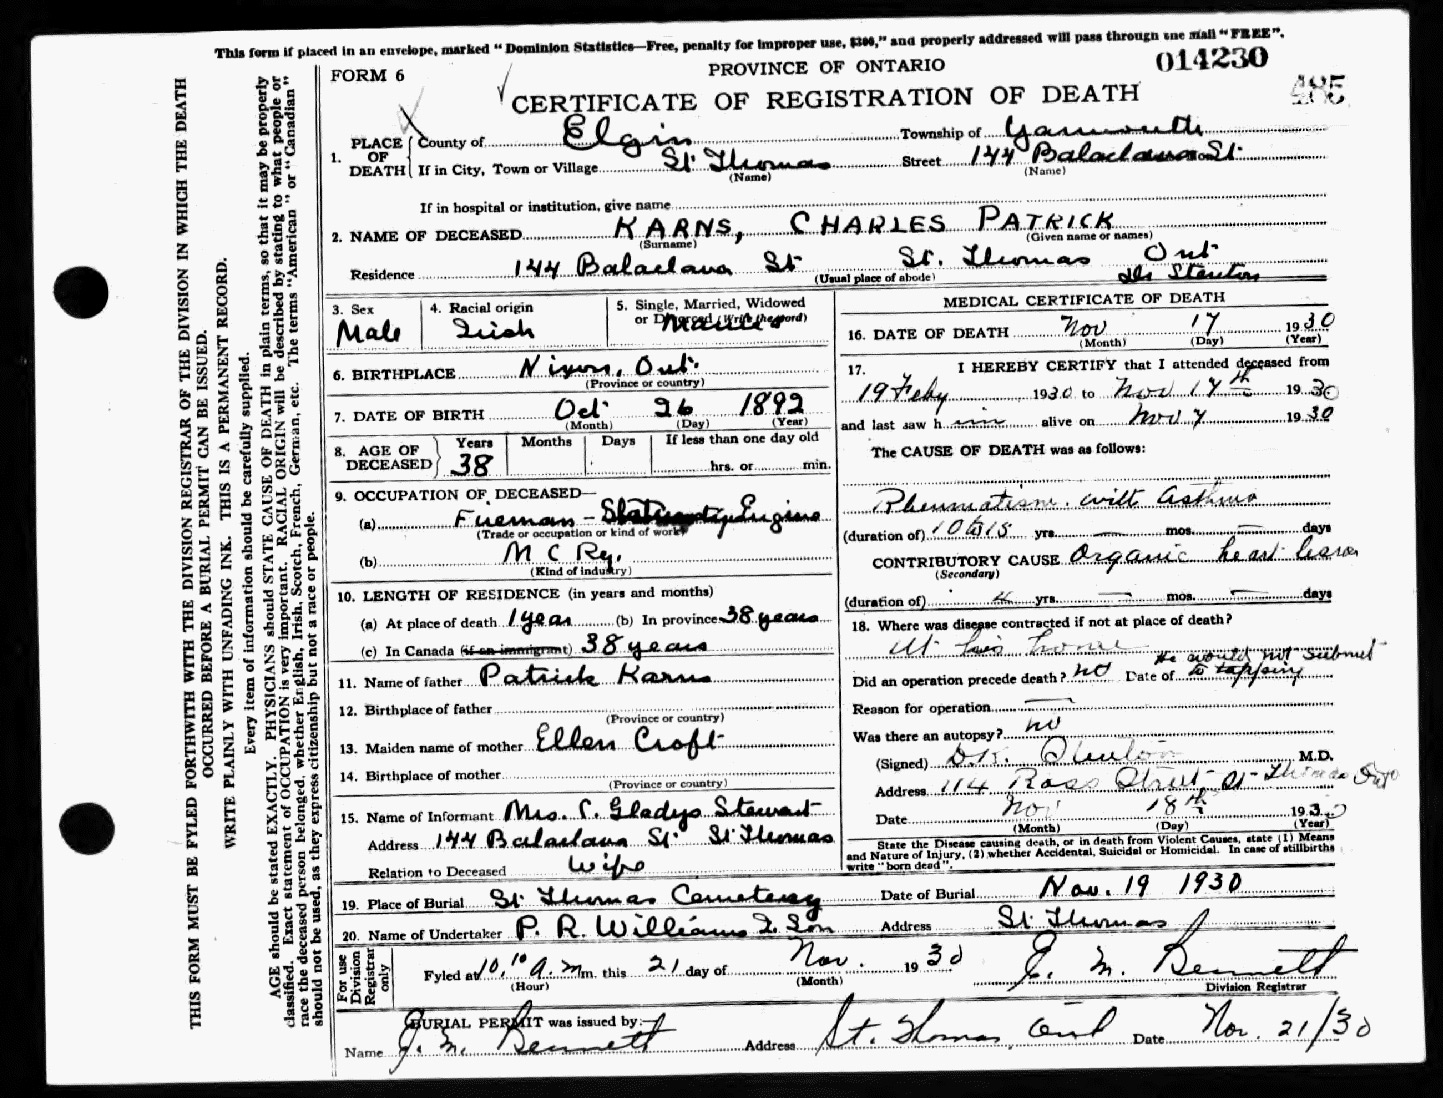 This form if placed in an envelope, marked "Dominion Statistics—Free, penalty for improper use, $300," and properly addressed will pass through the mail "FREE".
FORM 6
PROVINCE OF ONTARIO
014230
485
CERTIFICATE OF REGISTRATION OF DEATH
THIS FORM MUST BE FYLED FORTHWITH WITH THE DIVISION REGISTRAR OF THE DIVISION IN WHICH THE DEATH
OCCURRED BEFORE A BURIAL PERMIT CAN BE ISSUED.
WRITE PLAINLY WITH UNFADING INK. THIS IS A PERMANENT RECORD.
Every item of information should be carefully supplied.
AGE should be stated EXACTLY. PHYSICIANS should STATE CAUSE OF DEATH in plain terms, so that it may be properly
classified. Exact statement of OCCUPATION is very important. RACIAL ORIGIN will be described by stating to what people or
race the deceased person belonged, whether English, Irish, Scotch, French, German, etc. The terms "American" or "Canadian"
should not be used, as they express citizenship but not a race or people.
1. PLACE OF DEATH
County of Elgin Township of Yarmouth
If in City, Town or Village St Thomas Street 144 Balaclava St
(Name) (Name)
If in hospital or institution, give name
2. NAME OF DECEASED KARNS, CHARLES PATRICK
(Surname) (Given name or names)
Residence 144 Balaclava St St. Thomas Ont
(Usual place of abode) Dr Stenton
3. Sex Male
4. Racial origin Irish
5. Single, Married, Widowed or Divorced (Write the word) Married
6. BIRTHPLACE Nixon, Ont.
(Province or country)
7. DATE OF BIRTH Oct 26 1892
(Month) (Day) (Year)
8. AGE OF DECEASED
Years Months Days If less than one day old
38 hrs. or min.
9. OCCUPATION OF DECEASED—
(a) Fireman - Engine
(Trade or occupation or kind of work)
(b) M C Ry.
(Kind of industry)
10. LENGTH OF RESIDENCE (in years and months)
(a) At place of death 1 year (b) In province 38 years
(c) In Canada (if an immigrant) 38 years
11. Name of father Patrick Karns
12. Birthplace of father
(Province or country)
13. Maiden name of mother Ellen Croft
14. Birthplace of mother
(Province or country)
15. Name of Informant Mrs. C. Gladys Stewart
Address 144 Balaclava St St Thomas
Relation to Deceased Wife
MEDICAL CERTIFICATE OF DEATH
16. DATE OF DEATH Nov 17 1930
(Month) (Day) (Year)
17. I HEREBY CERTIFY that I attended deceased from
19 Feby 1930 to Nov 17th 1930
and last saw him alive on Nov 7 1930
The CAUSE OF DEATH was as follows:
Rheumatism with Asthma
(duration of) 10 to 15 yrs. — mos. — days
CONTRIBUTORY CAUSE Organic heart lesion
(Secondary)
(duration of) 4 yrs. — mos. — days
18. Where was disease contracted if not at place of death?
At his home
Did an operation precede death? no Date of He would not submit to tapping
Reason for operation —
Was there an autopsy? no
(Signed) Stenton M.D.
Address 114 Ross Street St Thomas
Date Nov 18th 1930
(Month) (Day) (Year)
State the Disease causing death, or in death from Violent Causes, state (1) Means
and Nature of Injury, (2) whether Accidental, Suicidal or Homicidal. In case of stillbirths
write "born dead".
19. Place of Burial St Thomas Cemetery Date of Burial Nov. 19 1930
20. Name of Undertaker P. R. Williams & Son Address St Thomas
For use Division Registrar only
Fyled at 10.10 a.m m. this 21 day of Nov. 1930 J. M. Bennett
(Hour) (Month) Division Registrar
BURIAL PERMIT was issued by:—
Name J. M. Bennett Address St. Thomas, Ont Date Nov. 21/30